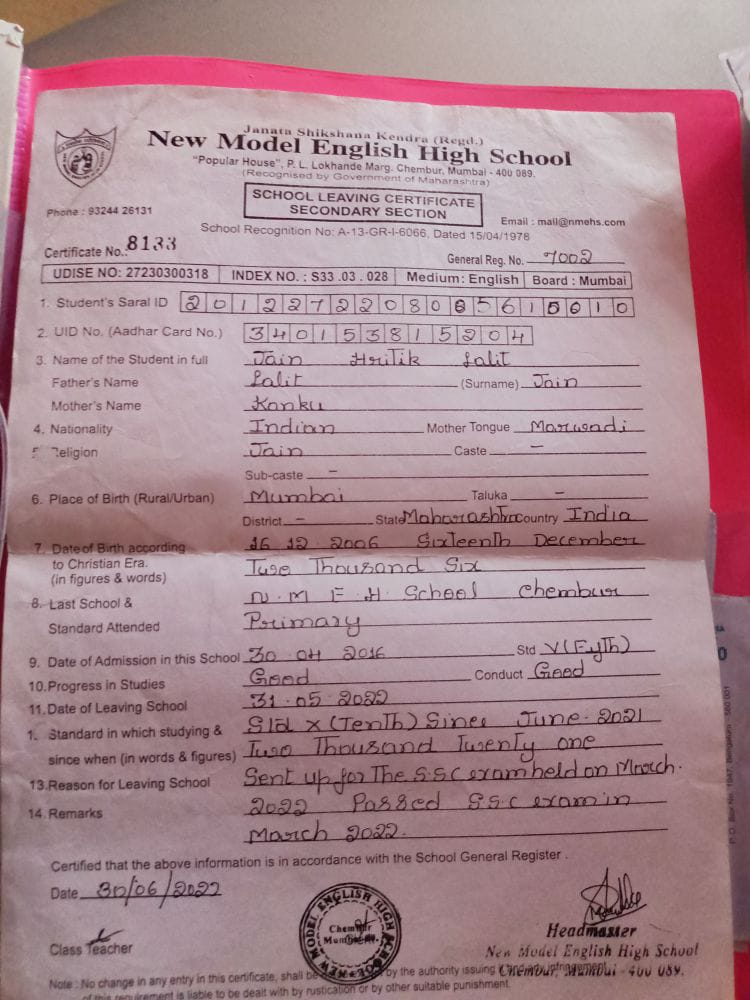 Janata Shikshana Kendra (Regd.)
New Model English High School
"Popular House", P. L. Lokhande Marg. Chembur, Mumbai - 400 089.
(Recognised by Government of Maharashtra)
SCHOOL LEAVING CERTIFICATE
SECONDARY SECTION
Phone : 93244 26131
Email : mail@nmehs.com
School Recognition No: A-13-GR-I-6066, Dated 15/04/1978
Certificate No.: 8133 General Reg. No. 7002
UDISE NO: 27230300318 INDEX NO. : S33 .03 . 028 Medium: English Board : Mumbai
1. Student's Saral ID 2012272208085615010
2. UID No. (Aadhar Card No.) 340153815204
3. Name of the Student in full Jain Hritik Lalit
Father's Name Lalit (Surname) Jain
Mother's Name Kanku
4. Nationality Indian Mother Tongue Marwadi
5 Religion Jain Caste –
Sub-caste –
6. Place of Birth (Rural/Urban) Mumbai Taluka –
District – State Maharashtra Country India
7. Date of Birth according 16 12 2006 Sixteenth December
to Christian Era. Two Thousand Six
(in figures & words)
8. Last School & N. M. E. H. School Chembur
Standard Attended Primary
9. Date of Admission in this School 30 04 2016 Std V (Fyth)
10. Progress in Studies Good Conduct Good
11. Date of Leaving School 31.05.2022
1. Standard in which studying & Std X (Tenth) Since June. 2021
since when (in words & figures) Two Thousand Twenty one
13. Reason for Leaving School Sent up for The S.S.C exam held on March.
14. Remarks 2022 Passed S.S.C exam in
March 2022.
Certified that the above information is in accordance with the School General Register .
Date 30/06/2022
NEW MODEL ENGLISH HIGH SCHOOL
Chembur
Mumbai
Class Teacher
Headmaster
New Model English High School
Chembur, Mumbai - 400 089.
Note : No change in any entry in this certificate, shall be by the authority issuing
of this requirement is liable to be dealt with by rustication or by other suitable punishment.
P. O. Box No. 1947, Bengaluru - 560 001